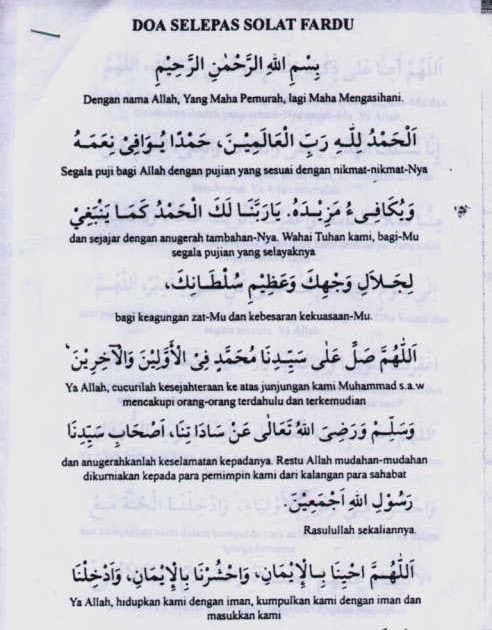 DOA SELEPAS SOLAT FARDU
بِسْمِ اللهِ الرَّحْمٰنِ الرَّحِيْمِ
Dengan nama Allah, Yang Maha Pemurah, lagi Maha Mengasihani.
اَلْحَمْدُ لِلّٰهِ رَبِّ الْعَالَمِيْنَ، حَمْدًا يُوَافِىْ نِعَمَهُ
Segala puji bagi Allah dengan pujian yang sesuai dengan nikmat-nikmat-Nya
وَيُكَافِىءُ مَزِيْدَهُ. يَارَبَّنَا لَكَ الْحَمْدُ كَمَا يَنْبَغِيْ
dan sejajar dengan anugerah tambahan-Nya. Wahai Tuhan kami, bagi-Mu
segala pujian yang selayaknya
لِجَلاَلِ وَجْهِكَ وَعَظِيْمِ سُلْطَانِكَ،
bagi keagungan zat-Mu dan kebesaran kekuasaan-Mu.
اَللّٰهُمَّ صَلِّ عَلٰى سَيِّدِنَا مُحَمَّدٍ فِى الْأَوَّلِيْنَ وَالْآخِرِيْنَ
Ya Allah, cucurilah kesejahteraan ke atas junjungan kami Muhammad s.a.w
mencakupi orang-orang terdahulu dan terkemudian
وَسَلِّمْ وَرَضِىَ اللهُ تَعَالٰى عَنْ سَادَاتِنَا، اَصْحَابِ سَيِّدِنَا
dan anugerahkanlah keselamatan kepadanya. Restu Allah mudahan-mudahan
dikurniakan kepada para pemimpin kami dari kalangan para sahabat
رَسُوْلِ اللهِ اَجْمَعِيْنَ.
Rasulullah sekaliannya.
اَللّٰهُمَّ احْيِنَا بِالْإِيْمَانِ، وَاحْشُرْنَا بِالْإِيْمَانِ، وَاَدْخِلْنَا
Ya Allah, hidupkan kami dengan iman, kumpulkan kami dengan iman dan
masukkan kami